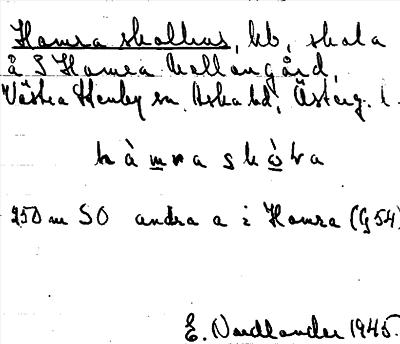 Hamra skolhus, kb, skola
å S Hamra mellangård,
Västra Stenby sn. Aska hd, Österg. l.
hàmra skò̀la
250 m SO andra a i Hamra (G54)
E. Nordlander 1945.